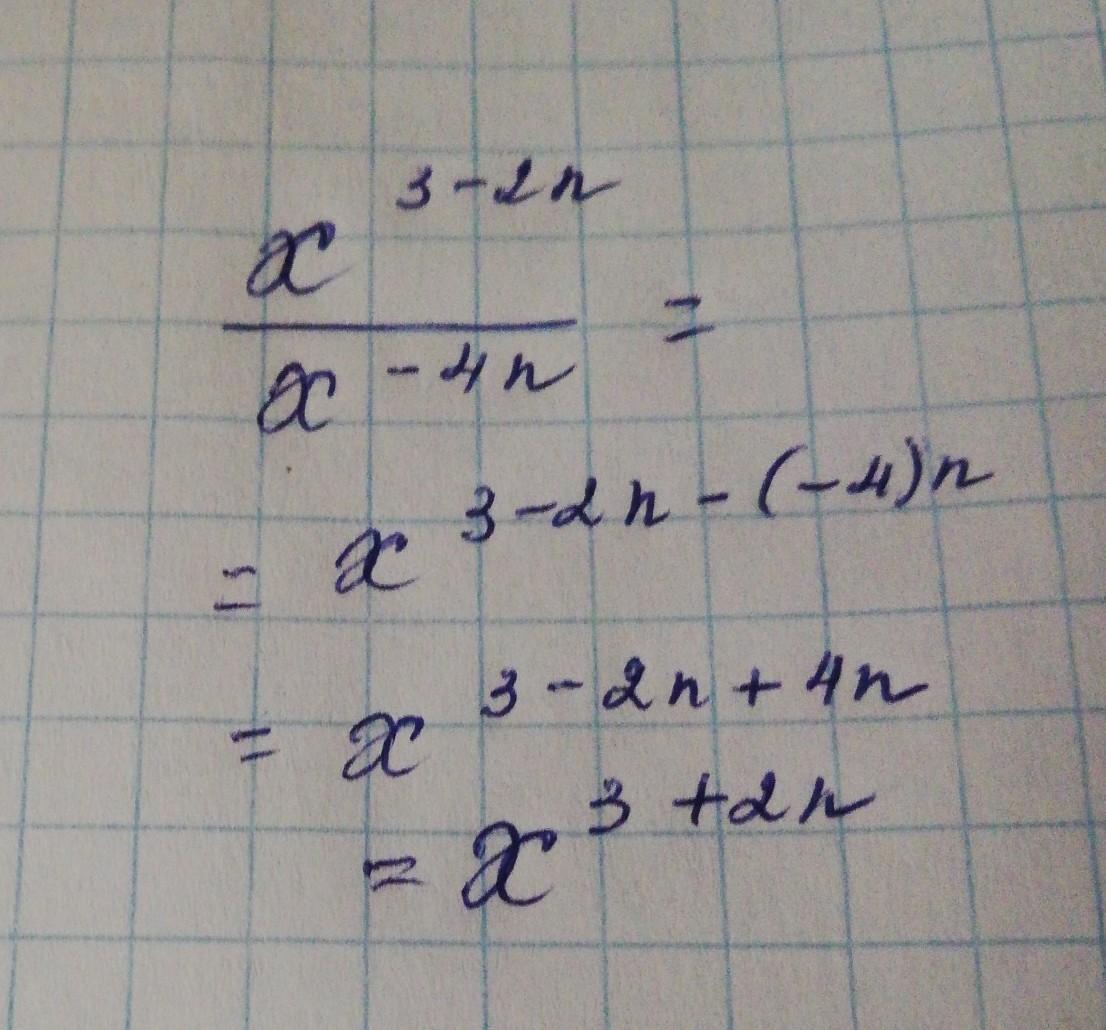 x^{3-2n} / x^{-4n} =
= x^{3-2n-(-4)n}
= x^{3-2n+4n}
= x^{3+2n}